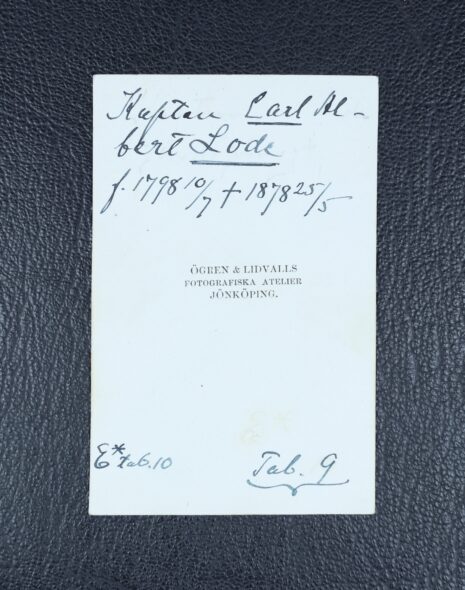 Kapten Carl Al-
bert Lode
f. 1798 10/7 + 1878 25/5
ÖGREN & LIDVALLS
FOTOGRAFISKA ATELIER
JÖNKÖPING.
E* tab. 10
Tab. 9